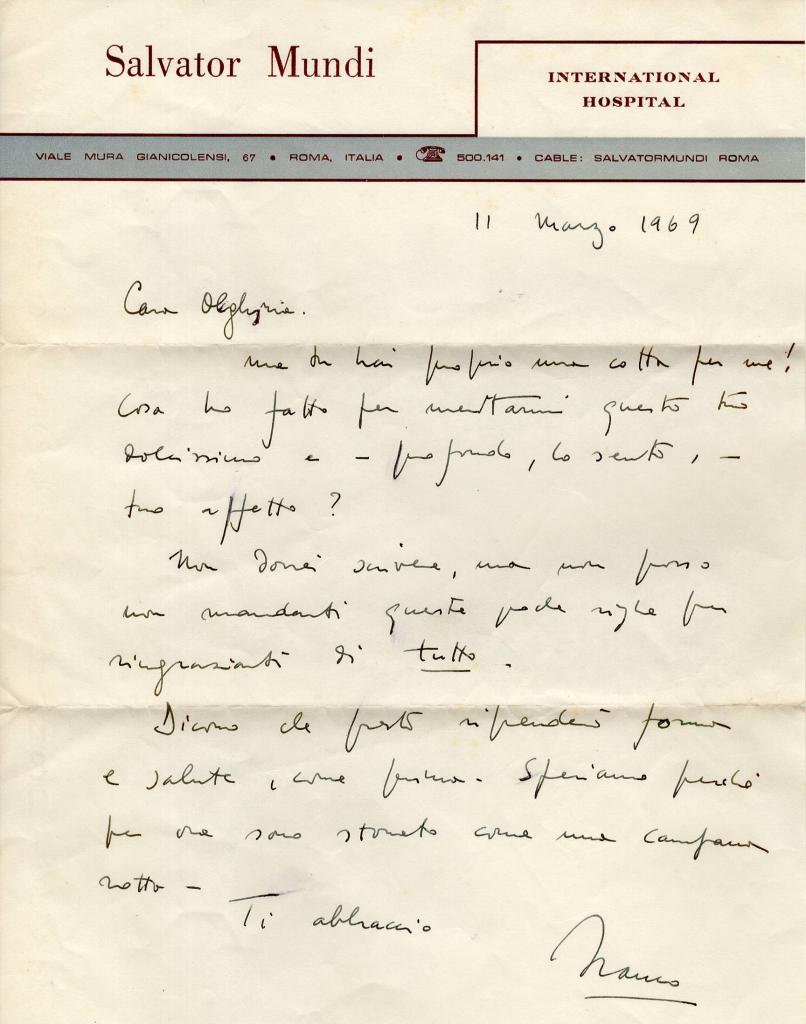 Salvator Mundi
INTERNATIONAL
HOSPITAL
VIALE MURA GIANICOLENSI, 67 • ROMA, ITALIA • 500.141 • CABLE: SALVATORMUNDI ROMA
11 Marzo 1969
Cara Olghina.
ma tu hai proprio una cotta per me!
Cosa ho fatto per meritarmi questo tuo
dolcissimo e – profondo, lo sento, –
tuo affetto?
Non dovrei scrivere, ma non posso
non mandarti queste poche righe per
ringraziarti di tutto.
Dicono che presto riprenderò forma
e salute, come prima. Speriamo perché
per ora sono stonato come una campana
rotta –
Ti abbraccio
Franco